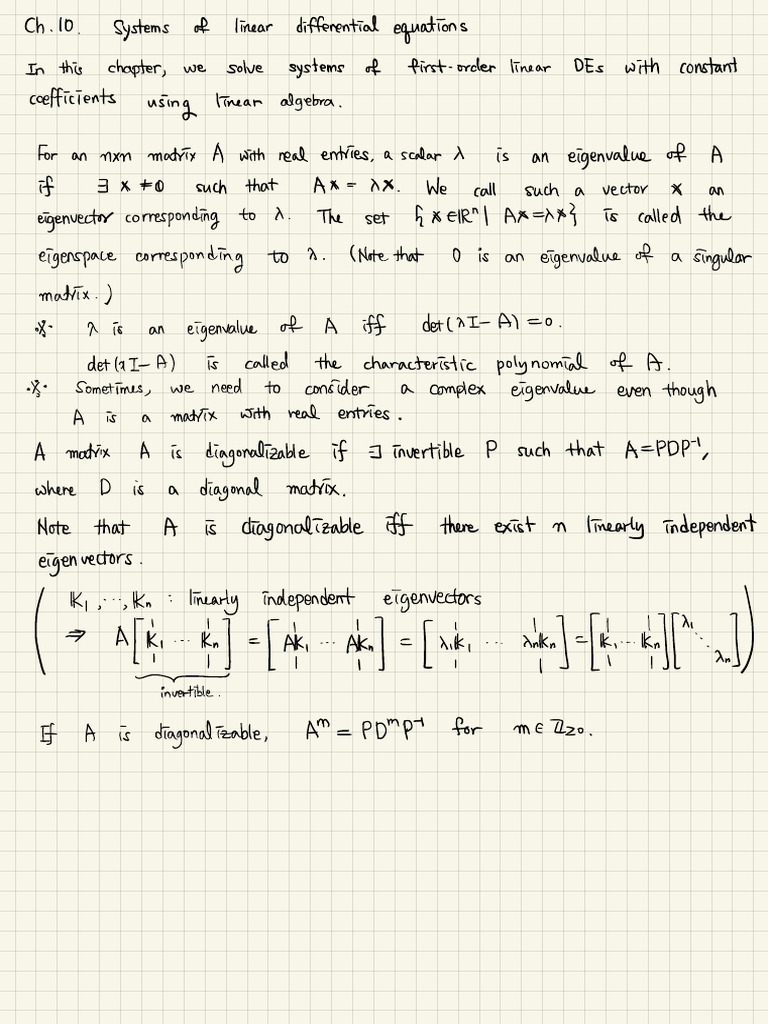 Ch.10. Systems of linear differential equations
In this chapter, we solve systems of first-order linear DEs with constant
coefficients using linear algebra.
For an n×n matrix A with real entries, a scalar λ is an eigenvalue of A
if ∃ 𝕩 ≠ 𝟘 such that A𝕩 = λ𝕩. We call such a vector 𝕩 an
eigenvector corresponding to λ. The set {𝕩∈ℝⁿ | A𝕩=λ𝕩} is called the
eigenspace corresponding to λ. (Note that 0 is an eigenvalue of a singular
matrix.)
※ λ is an eigenvalue of A iff det(λI-A)=0.
det(λI-A) is called the characteristic polynomial of A.
※ Sometimes, we need to consider a complex eigenvalue even though
A is a matrix with real entries.
A matrix A is diagonalizable if ∃ invertible P such that A=PDP⁻¹,
where D is a diagonal matrix.
Note that A is diagonalizable iff there exist n linearly independent
eigenvectors.
( 𝕂₁, ⋯, 𝕂ₙ : linearly independent eigenvectors
⇒ A[𝕂₁ ⋯ 𝕂ₙ] = [A𝕂₁ ⋯ A𝕂ₙ] = [λ₁𝕂₁ ⋯ λₙ𝕂ₙ] = [𝕂₁ ⋯ 𝕂ₙ][λ₁ ⋱ λₙ] )
invertible.
If A is diagonalizable, Aᵐ = PDᵐP⁻¹ for m∈ℤ≥0.